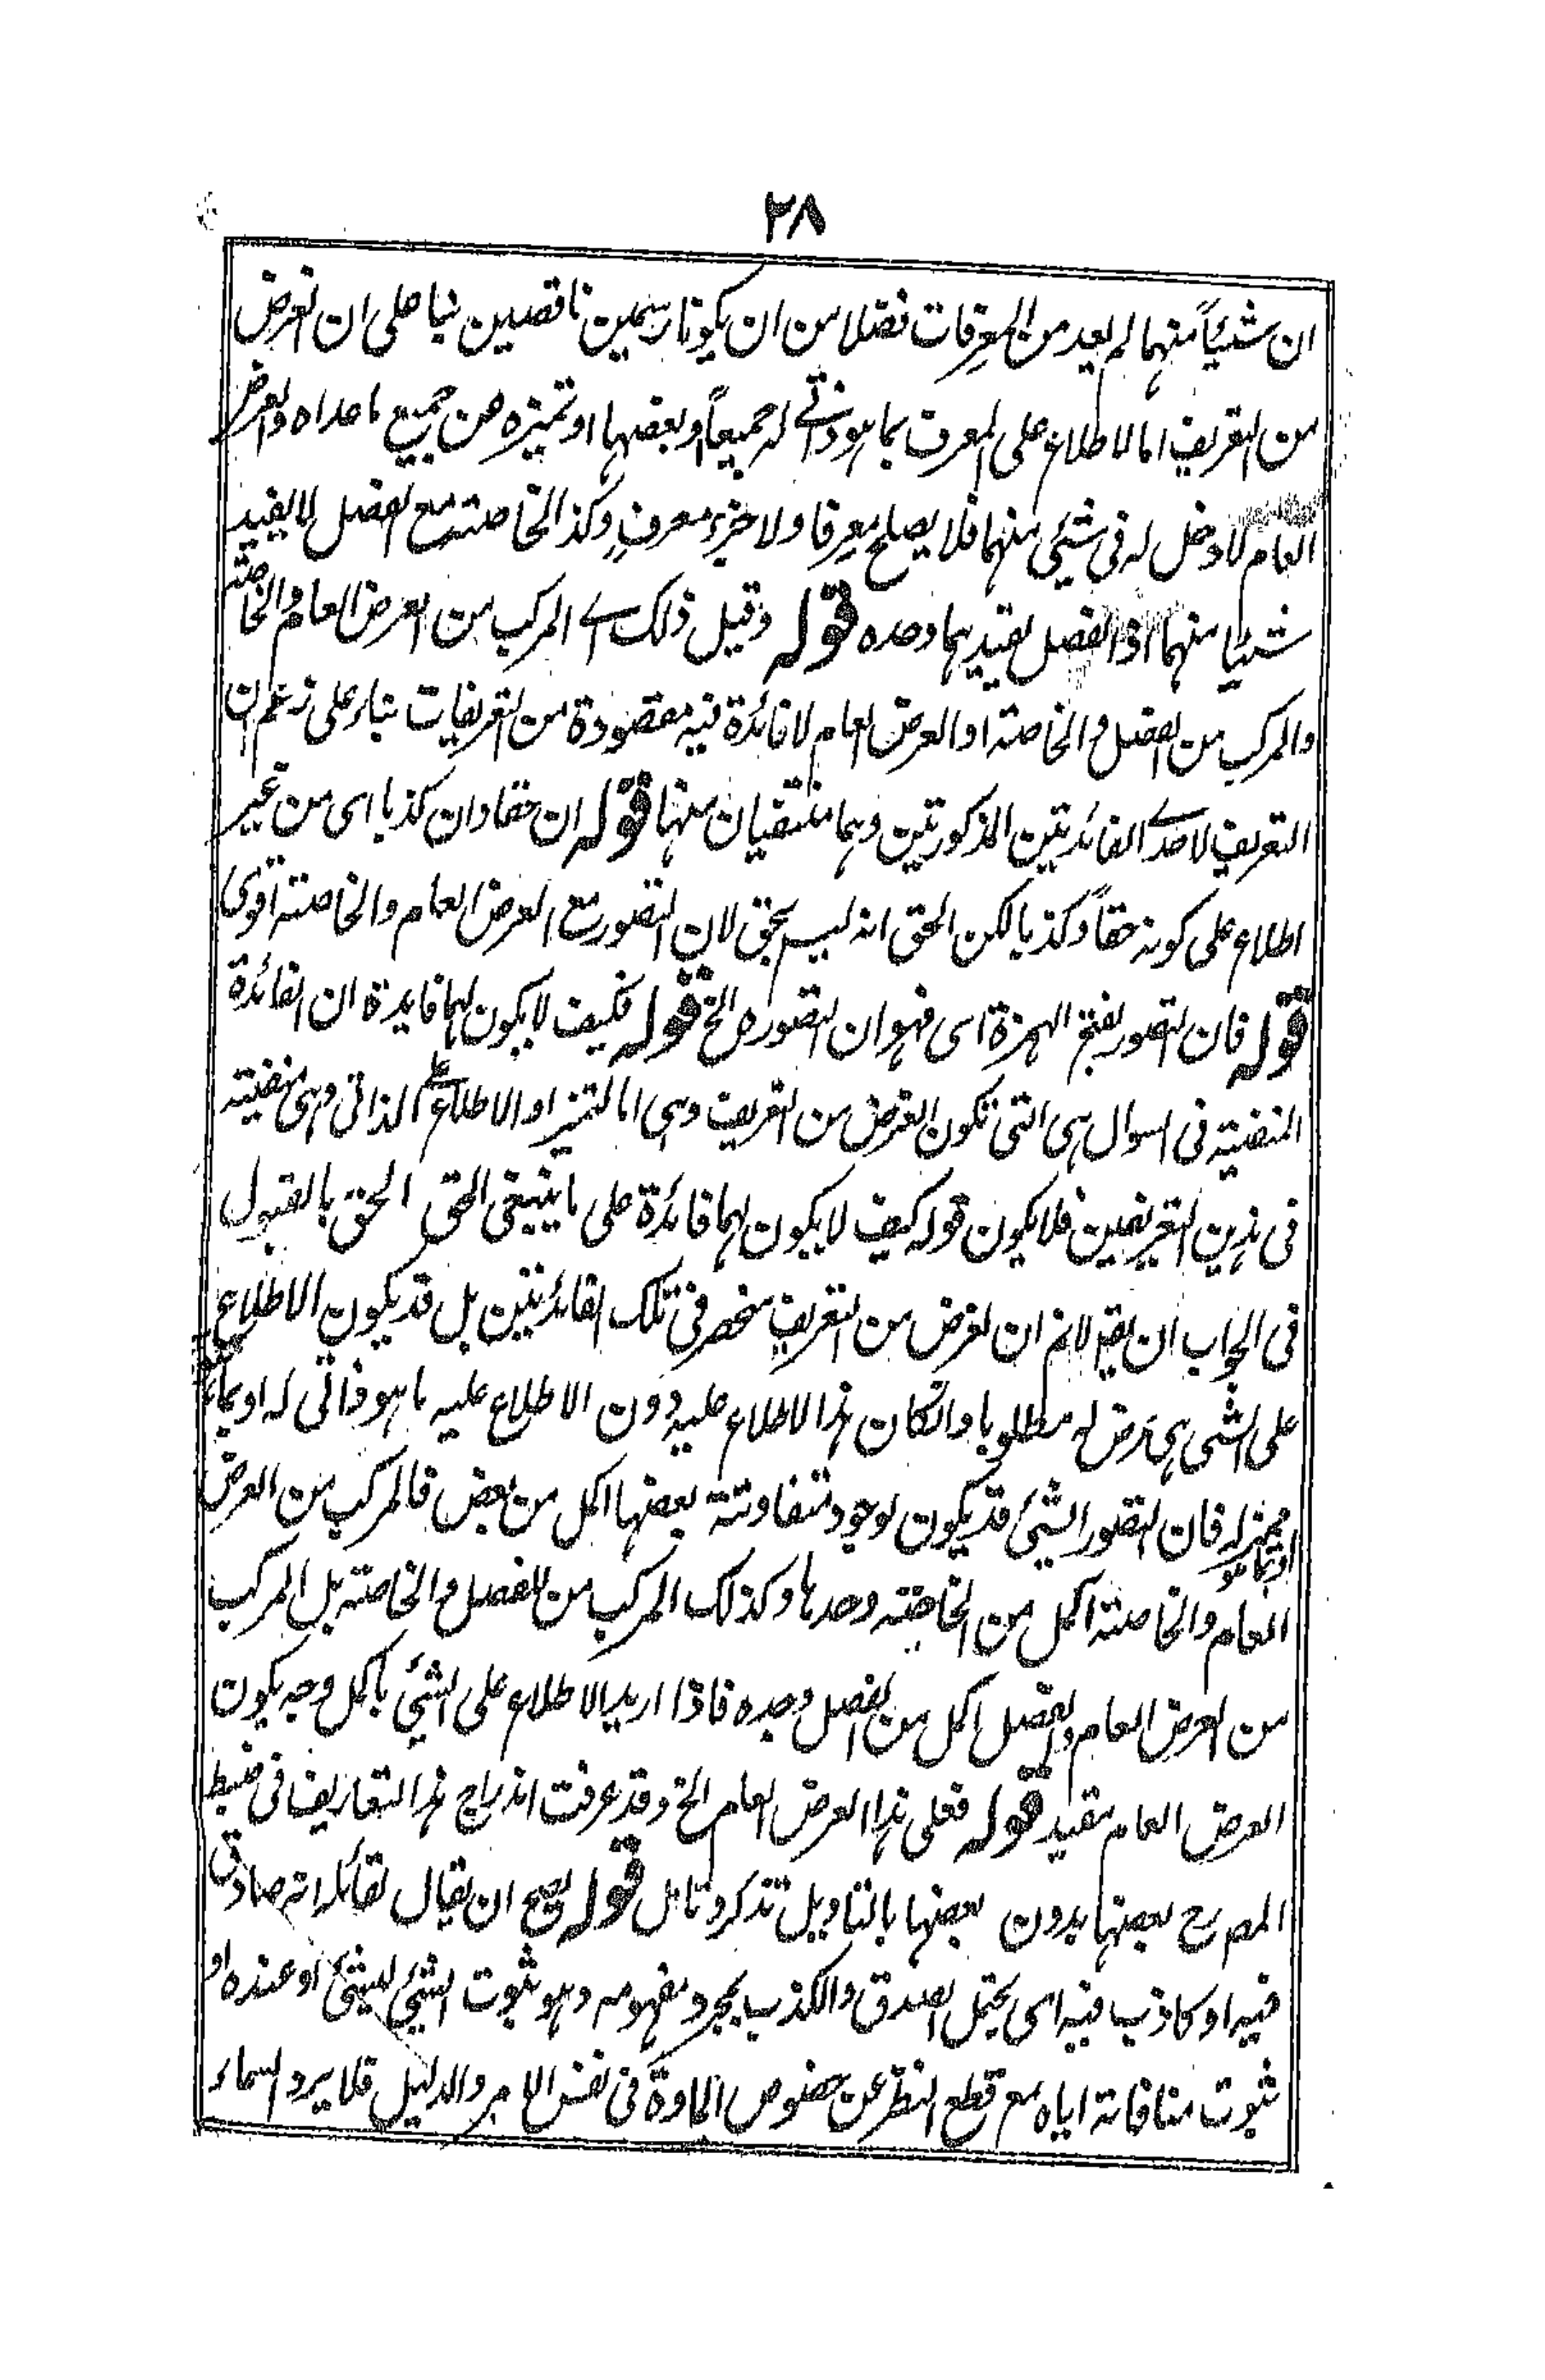 ٢٨
ان شيئاً منهما لم يعد من المعرفات فضلا من ان يكونا رسمين ناقصين بنا على ان الغرض
من التعريف اما الاطلاع على المعرف بما هو ذاتے له جميعاً او بعضها او تميزه عن جميع ما عداه والعرض
العام لا دخل له فى شئ منهما فلا يصلح معرفا ولا جزء معرف وكذا الخاصته مع الفصل لا يفيد
شيئا منهما اذ الفصل يفيد بهما وحده قوله وقيل ذلك اے المركب من العرض العام والخاصته
والمركب من الفصل والخاصته او العرض العام لا فائدة فيه مقصودة من التعريفات بناء على زعم ان
التعريف لاحدے الفائدتين المذكورتين وهما منتفيان منها قوله ان حقا وان كذبا اى من غير
اطلاع على كونه حقاً وكذبا لكن الحق انه ليس بحق لان التصور مع العرض العام والخاصته اقوى
قوله فان تصور بفتح الهمزة اى فهو ان التصوره الخ قوله فكيف لا يكون لهما فايدة ان الفائدة
المنفية فى السوال هى التى تكون الغرض من التعريف وهى اما التميز او الاطلاع على الذاتى وهى منفية
فى هذين التعريفين فلا يكون قوله كيف لا يكون لهما فائدة على ما ينبغى الحق الحق بالقبول
فى الجواب ان يقو لا نم ان الغرض من التعريف منحصر فى تلك الفائدتين بل قد يكون الاطلاع
على الشئ بعرض له مطلوبا وانكان هذا الاطلاع عليه دون الاطلاع عليه ما هو ذاتى له او بما
مميز له فان التصور الشئ قد يكون لوجود متفاوتة بعضها اكمل من بعض فالمركب من العرض
العام والخاصته اكمل من الخاصته وحدها وكذلك المركب من الفصل والخاصته بل المركب
من العرض العام والفصل اكمل من الفصل وحده فاذا اريد الاطلاع على الشئ باكمل وجه يكون
العرض العام مفيد قوله فعلى هذا العرض العام الخ وقد عرفت اندراج هذا التعاريف فى ضبط
المصرح بعضها بدون بعضها بالتاويل تذكر وتامل قوله يصح ان يقال لقائله انه صادق
فيه او كاذب فيه اى يحتمل الصدق والكذب بمجرد مفهومه وهو ثبوت الشئ للشئ او عنده او
ثبوت منافاته اياه مع قطع النظر عن خصوص المادة فى نفس الامر والدليل فلا يرد السماء